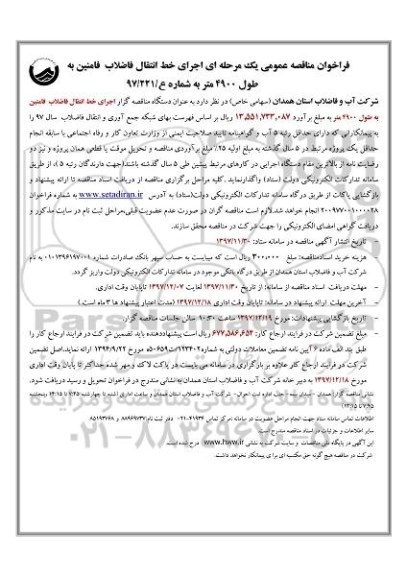 فراخوان مناقصه عمومی یک مرحله ای اجرای خط انتقال فاضلاب فامنین به
طول ۴۹۰۰ متر به شماره ع/۹۷/۲۲۱
شرکت آب و فاضلاب استان همدان (سهامی خاص) در نظر دارد به عنوان دستگاه مناقصه گزار اجرای خط انتقال فاضلاب فامنین
به طول ۴۹۰۰ متر به مبلغ برآورد ۱۳,۵۵۱,۷۳۳,۰۸۷ ریال بر اساس فهرست بهای شبکه جمع آوری و انتقال فاضلاب سال ۹۷ را
به پیمانکارانی که دارای حداقل رتبه ۵ آب و گواهینامه تایید صلاحیت ایمنی از وزارت تعاون کار و رفاه اجتماعی با سابقه انجام
حداقل یک پروژه مرتبط در ۵ سال گذشته به مبلغ اولیه ۲۵٪ مبلغ برآوردی مناقصه و تحویل موقت یا قطعی همان پروژه و نیز دو
رضایت نامه از بالاترین مقام دستگاه اجرایی در کارهای مرتبط پیشین طی ۵ سال گذشته باشند(جهت دارندگان رتبه ۵)، از طریق
سامانه تدارکات الکترونیکی دولت (ستاد) واگذارنماید. کلیه مراحل برگزاری مناقصه از دریافت اسناد مناقصه تا ارائه پیشنهاد و
بازگشایی پاکات از طریق درگاه سامانه تدارکات الکترونیکی دولت(ستاد) به آدرس www.setadiran.ir به شماره فراخوان
۲۰۰۹۷۷۰۰۱۰۰۰۰۲۸ انجام خواهد شد.لازم است مناقصه گران در صورت عدم عضویت قبلی،مراحل ثبت نام در سایت مذکور و
دریافت گواهی امضای الکترونیکی را جهت شرکت در مناقصه محقق سازند.
- تاریخ انتشار آگهی مناقصه در سامانه ستاد: ۱۳۹۷/۱۱/۳۰
هزینه خرید اسنادمناقصه: مبلغ ۳۰۰,۰۰۰ ریال است که میبایست به حساب سپهر بانک صادرات شماره ۰۱۰۱۳۹۶۱۹۷۰۰۱ به نام
شرکت آب و فاضلاب استان همدان از طریق درگاه بانکی موجود در سامانه تدارکات الکترونیکی دولت واریز گردد.
- مهلت دریافت اسناد مناقصه از سامانه: از تاریخ ۱۳۹۷/۱۱/۳۰ لغایت ۱۳۹۷/۱۲/۰۷ تاپایان وقت اداری.
- آخرین مهلت ارائه پیشنهاد در سامانه: تاپایان وقت اداری ۱۳۹۷/۱۲/۱۸ (مدت اعتبار پیشنهاد ها ۳ ماه است.)
- تاریخ بازگشایی پیشنهادات: مورخ ۱۳۹۷/۱۲/۱۹ ساعت ۱۰:۳۰ سالن جلسات مناقصه گزار.
- مبلغ تضمین شرکت در فرایند ارجاع کار: ۶۷۷,۵۸۶,۶۵۴ ریال است پیشنهاددهنده باید تضمین شرکت در فرایند ارجاع کار را
طبق بند الف ماده ۶ آیین نامه تضمین معاملات دولتی به شماره مورخ ۱۳۹۴/۹/۲۲ ارائه نماید.اصل تضمین
شرکت در فرایند ارجاع کار علاوه بر بارگزاری در سامانه می بایست در پاکت لاک و مهر شده حداکثر تا پایان وقت اداری
مورخ ۱۳۹۷/۱۲/۱۸ به دبیر خانه شرکت آب و فاضلاب استان همدان به نشانی مندرج در فراخوان تحویل و رسید دریافت شود.
نشانی مناقصه گزار: همدان - میدان بیمه- جنب اداره ثبت احوال- شرکت آب و فاضلاب استان همدان و ساعت اداری
اطلاعات تماس سامانه ستاد جهت انجام مراحل عضویت در سامانه :مرکز تماس ۴۱۹۳۴-۰۲۱ دفتر ثبت نام: ۸۸۹۶۹۷۳۷ و ۸۵۱۹۳۷۶۸
سایر اطلاعات و جزئیات در اسناد مناقصه مندرج است.
این آگهی در پایگاه ملی مناقصات و سایت شرکت به نشانی www.hww.ir درج شده است.
شرکت در مناقصه هیچ گونه حق مکتسبه ای برای پیمانکار نخواهد داشت.